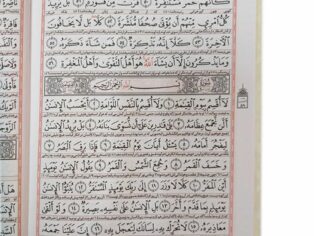 كَأَنَّهُمْ حُمُرٌ مُسْتَنْفِرَةٌ ۝ فَرَّتْ مِنْ قَسْوَرَةٍ ۝ بَلْ يُرِيدُ
كُلُّ امْرِئٍ مِنْهُمْ أَنْ يُؤْتَى صُحُفًا مُنَشَّرَةً ۝ كَلَّا بَلْ لَا يَخَافُونَ
الْآخِرَةَ ۝ كَلَّا إِنَّهُ تَذْكِرَةٌ ۝ فَمَنْ شَاءَ ذَكَرَهُ ۝
وَمَا يَذْكُرُونَ إِلَّا أَنْ يَشَاءَ اللَّهُ هُوَ أَهْلُ التَّقْوَى وَأَهْلُ الْمَغْفِرَةِ
بِسْمِ اللَّهِ الرَّحْمَنِ الرَّحِيمِ
لَا أُقْسِمُ بِيَوْمِ الْقِيَمَةِ ۝ وَلَا أُقْسِمُ بِالنَّفْسِ اللَّوَّامَةِ ۝ أَيَحْسَبُ الْإِنْسَنُ
أَلَّنْ نَجْمَعَ عِظَامَهُ ۝ بَلَى قَدِرِينَ عَلَى أَنْ نُسَوِّيَ بَنَانَهُ ۝ بَلْ يُرِيدُ الْإِنْسَنُ
لِيَفْجُرَ أَمَامَهُ ۝ يَسْئَلُ أَيَّانَ يَوْمُ الْقِيَمَةِ ۝ فَإِذَا بَرِقَ الْبَصَرُ
وَخَسَفَ الْقَمَرُ ۝ وَجُمِعَ الشَّمْسُ وَالْقَمَرُ ۝ يَقُولُ الْإِنْسَنُ يَوْمَئِذٍ
أَيْنَ الْمَفَرُّ ۝ كَلَّا لَا وَزَرَ ۝ إِلَى رَبِّكَ يَوْمَئِذٍ الْمُسْتَقَرُّ ۝ يُنَبَّؤُا الْإِنْسَنُ
يَوْمَئِذٍ بِمَا قَدَّمَ وَأَخَّرَ ۝ بَلِ الْإِنْسَنُ عَلَى نَفْسِهِ بَصِيرَةٌ ۝ وَلَوْ أَلْقَى
مَعَاذِيرَهُ ۝ لَا تُحَرِّكْ بِهِ لِسَانَكَ لِتَعْجَلَ بِهِ ۝ إِنَّ عَلَيْنَا جَمْعَهُ